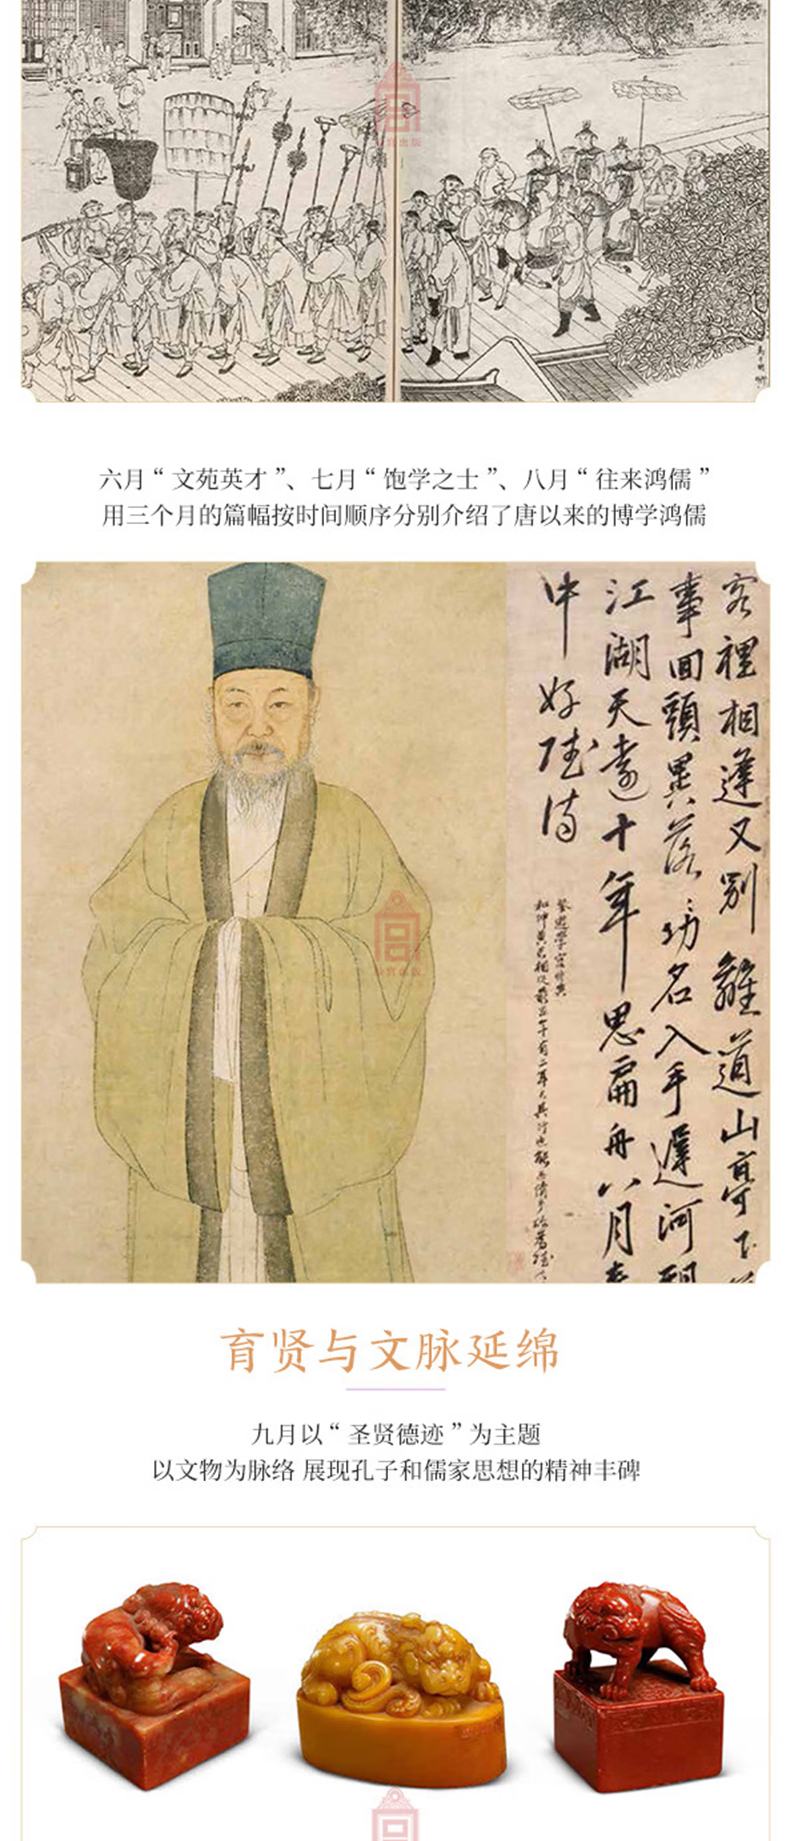 故宫出版
六月“文苑英才”、七月“饱学之士”、八月“往来鸿儒”
用三个月的篇幅按时间顺序分别介绍了唐以来的博学鸿儒
客裡相逢又别離道山亭下
事回頭異落功名入手遲河
江湖天遠十年思扁舟八月
中好陸
故宫出版
育贤与文脉延绵
九月以“圣贤德迹”为主题
以文物为脉络 展现孔子和儒家思想的精神丰碑